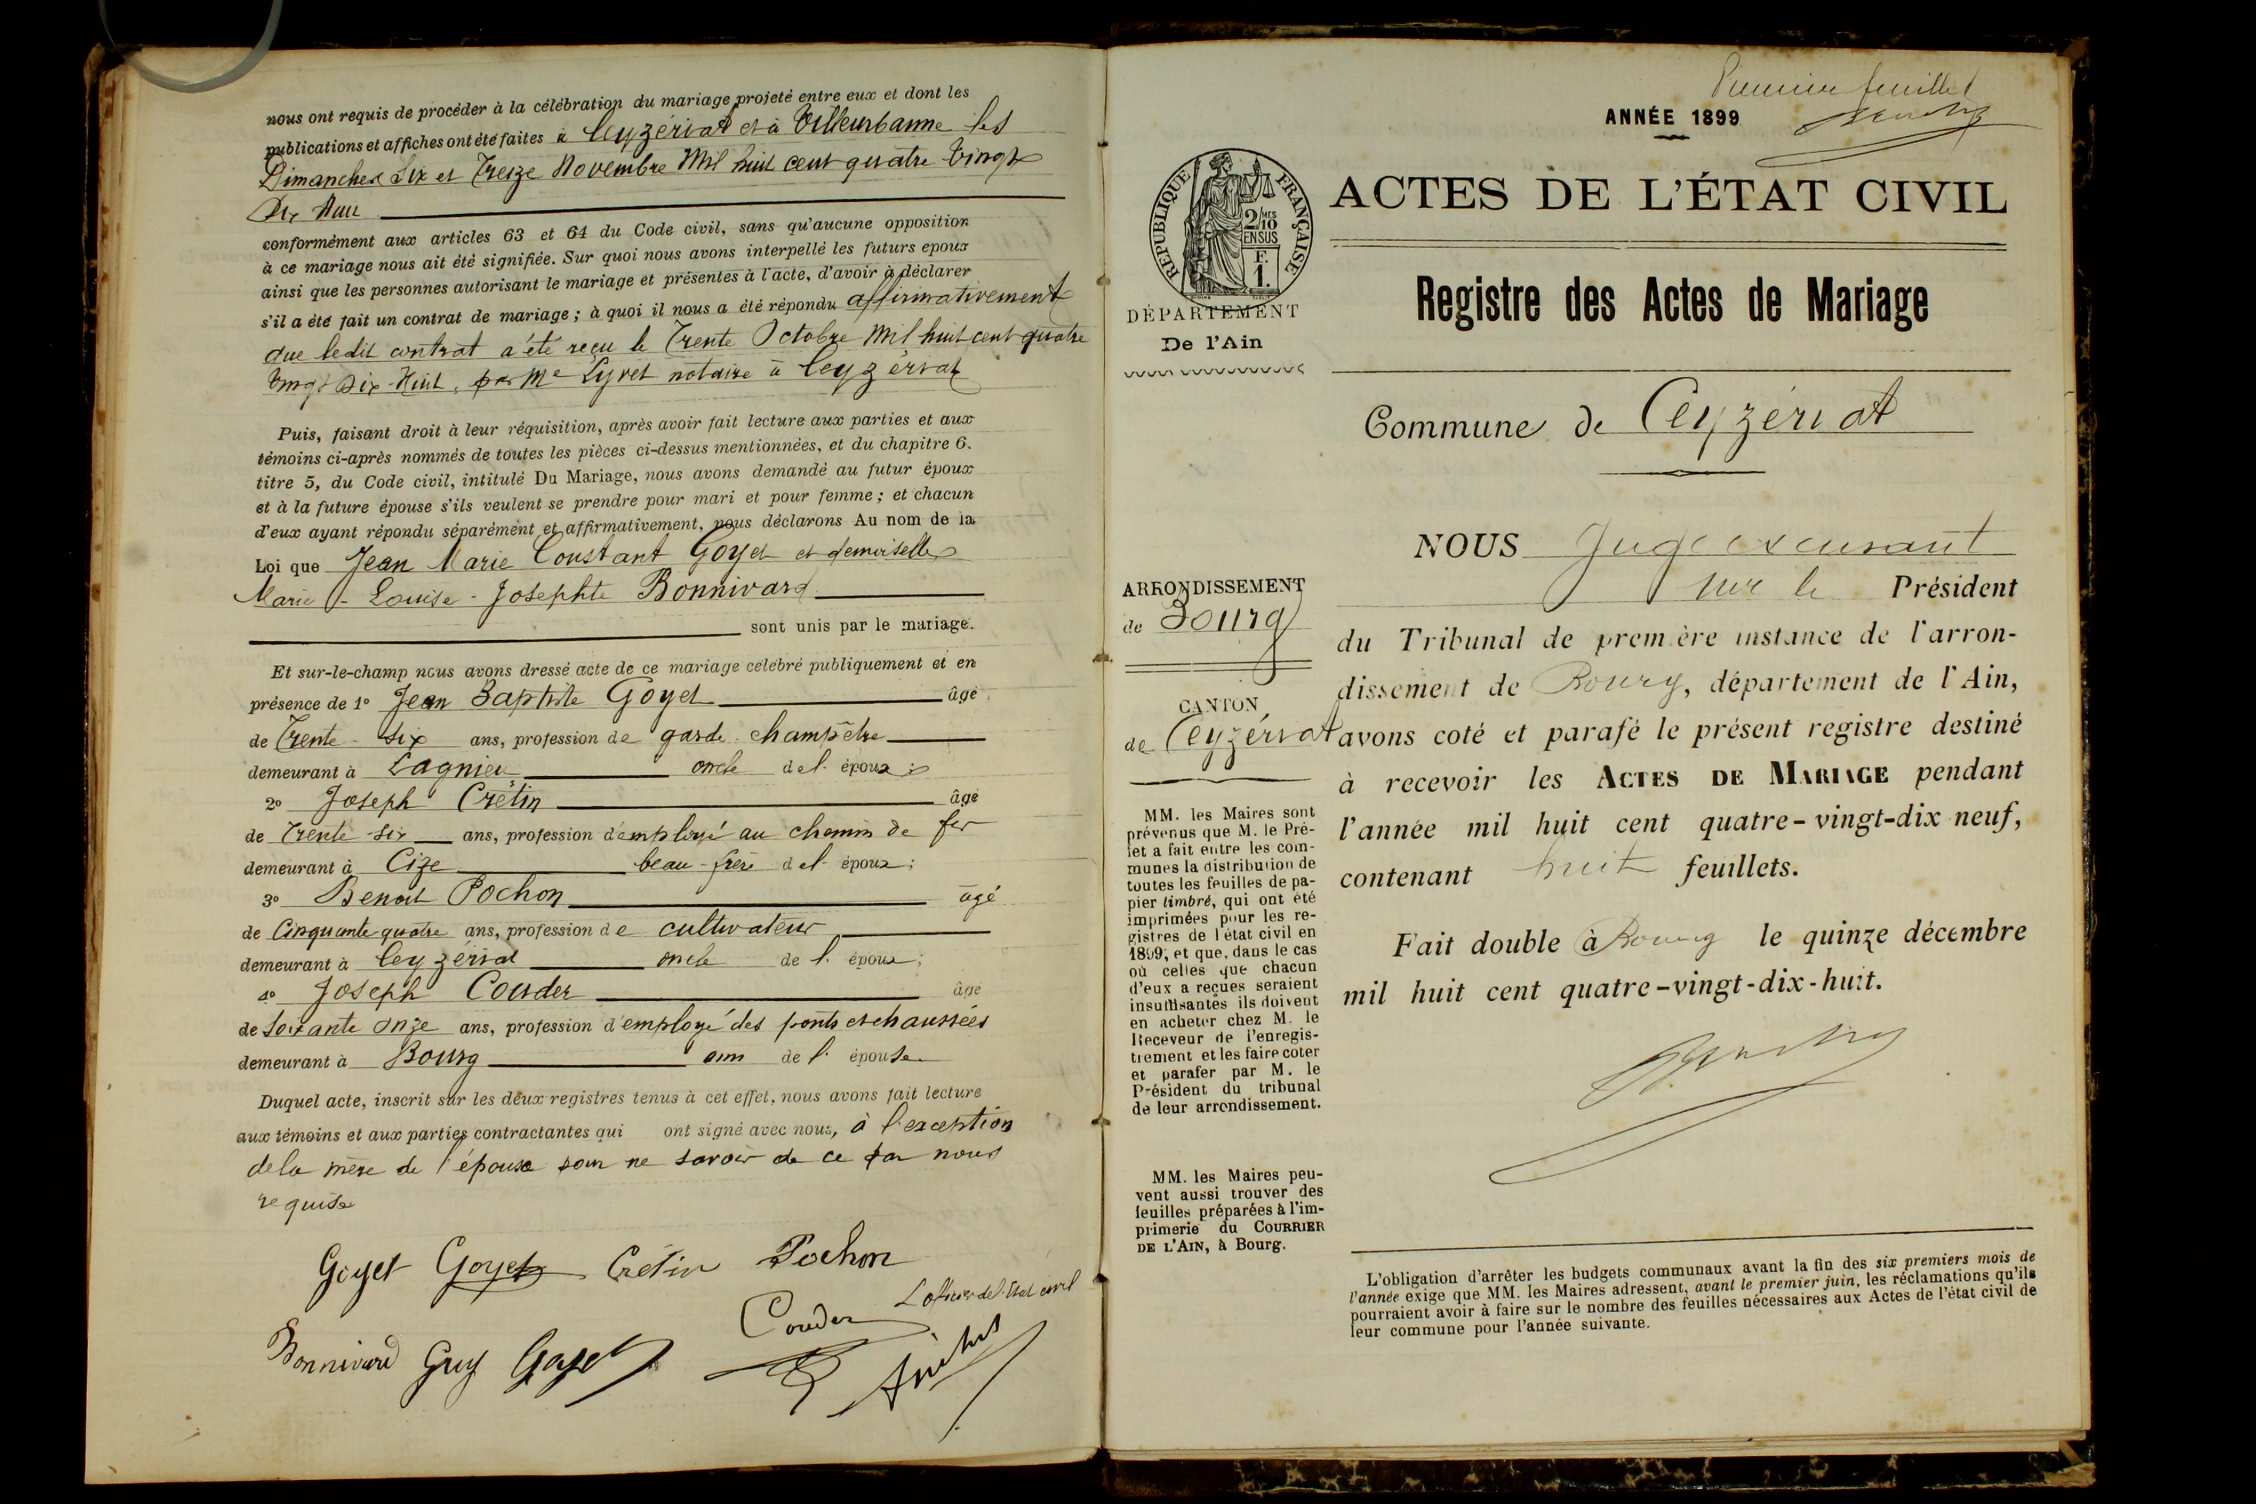 nous ont requis de procéder à la célébration du mariage projeté entre eux et dont les
publications et affiches ont été faites à Ceyzériat et à Villeurbanne les
Dimanches Six et Treize Novembre Mil huit cent quatre Vingt
Dix Huit
conformément aux articles 63 et 64 du Code civil, sans qu'aucune opposition
à ce mariage nous ait été signifiée. Sur quoi nous avons interpellé les futurs epoux
ainsi que les personnes autorisant le mariage et présentes à l'acte, d'avoir à déclarer
s'il a été fait un contrat de mariage ; à quoi il nous a été répondu affirmativement
que ledit contrat a été reçu le Trente Octobre Mil huit cent quatre
Vingt Dix-Huit, par Me Lyvet notaire à Ceyzériat
Puis, faisant droit à leur réquisition, après avoir fait lecture aux parties et aux
témoins ci-après nommés de toutes les pièces ci-dessus mentionnées, et du chapitre 6.
titre 5, du Code civil, intitulé Du Mariage, nous avons demandé au futur époux
et à la future épouse s'ils veulent se prendre pour mari et pour femme ; et chacun
d'eux ayant répondu séparément et affirmativement, nous déclarons Au nom de la
Loi que Jean Marie Constant Goyet et demoiselle
Marie - Louise - Josephte Bonnivard
sont unis par le mariage.
Et sur-le-champ nous avons dressé acte de ce mariage celebré publiquement et en
présence de 1º Jean Baptiste Goyet âgé
de Trente-Six ans, profession de garde champêtre
demeurant à Lagnieu oncle de l' époux ;
2º Joseph Crétin âgé
de Trente-Six ans, profession d'employé au chemin de fer
demeurant à Cize beau-frère de l' époux ;
3º Benoit Pochon âgé
de Cinquante quatre ans, profession de cultivateur
demeurant à Ceyzériat oncle de l' époux ;
4º Joseph Couder âgé
de Soixante onze ans, profession d'employé des ponts et chaussées
demeurant à Bourg ami de l' épouse
Duquel acte, inscrit sur les deux registres tenus à cet effet, nous avons fait lecture
aux témoins et aux parties contractantes qui ont signé avec nous, à l'exception
de la mère de l'épouse pour ne savoir de ce par nous
requise
Goyet Goyet Crétin Pochon
L'officier de l'Etat civil
Couder
Bonnivard Guy Goyet
Premier feuillet
ANNÉE 1899
RÉPUBLIQUE FRANÇAISE
2/10 EN SUS
F. 1.
ACTES DE L'ÉTAT CIVIL
Registre des Actes de Mariage
DÉPARTEMENT
De l'Ain
Commune de Ceyzériat
ARRONDISSEMENT
de Bourg
CANTON
de Ceyzériat
MM. les Maires sont
prévenus que M. le Pré-
fet a fait entre les com-
munes la distribution de
toutes les feuilles de pa-
pier timbré, qui ont été
imprimées pour les re-
gistres de l'état civil en
1899, et que, dans le cas
où celles que chacun
d'eux a reçues seraient
insuffisantes ils doivent
en acheter chez M. le
Receveur de l'enregis-
trement et les faire coter
et parafer par M. le
Président du tribunal
de leur arrondissement.
MM. les Maires peu-
vent aussi trouver des
feuilles préparées à l'im-
primerie du COURRIER
DE L'AIN, à Bourg.
NOUS Juge
Président
du Tribunal de première instance de l'arron-
dissement de Bourg, département de l'Ain,
avons coté et parafé le présent registre destiné
à recevoir les ACTES DE MARIAGE pendant
l'année mil huit cent quatre-vingt-dix neuf,
contenant huit feuillets.
Fait double à Bourg le quinze décembre
mil huit cent quatre-vingt-dix-huit.
L'obligation d'arrêter les budgets communaux avant la fin des six premiers mois de
l'année exige que MM. les Maires adressent, avant le premier juin, les réclamations qu'ils
pourraient avoir à faire sur le nombre des feuilles nécessaires aux Actes de l'état civil de
leur commune pour l'année suivante.